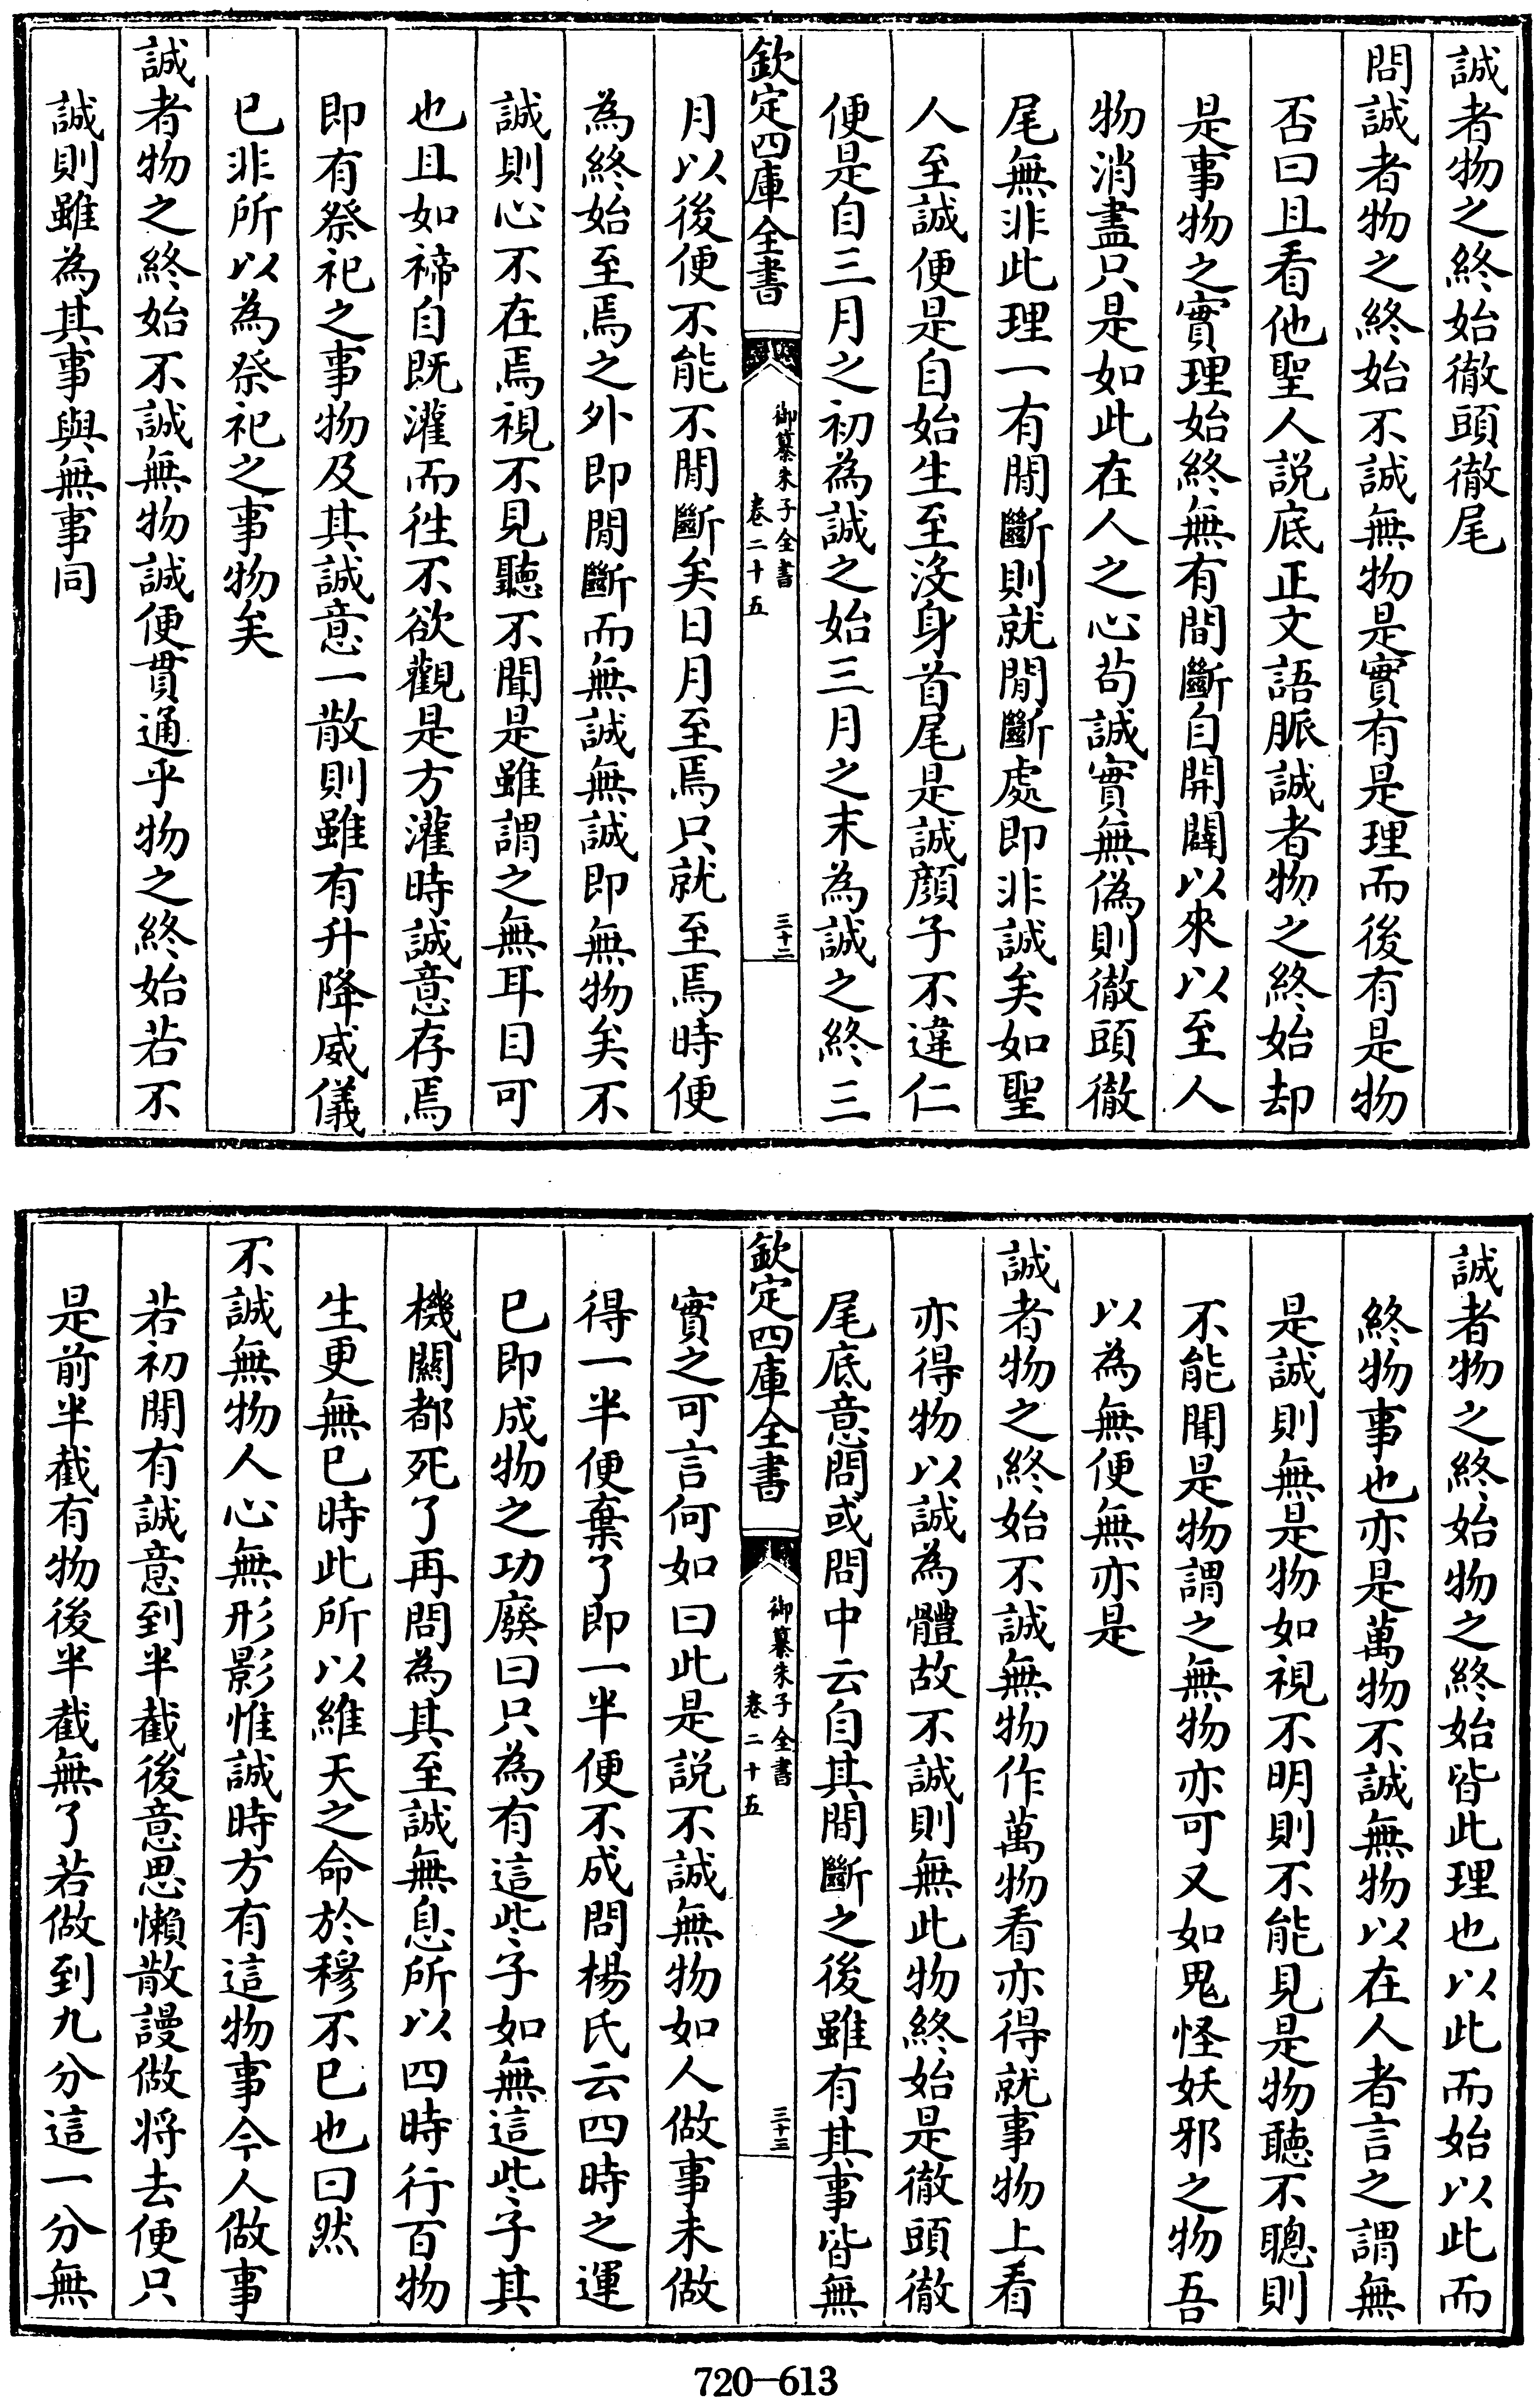 誠者物之終始徹頭徹尾
問誠者物之終始不誠無物是實有是理而後有是物
否曰且看他聖人説底正文語脈誠者物之終始却
是事物之實理始終無有間斷自開闢以來以至人
物消盡只是如此在人之心苟誠實無偽則徹頭徹
尾無非此理一有間斷則就間斷處即非誠矣如聖
人至誠便是自始生至沒身首尾是誠顔子不違仁
便是自三月之初為誠之始三月之末為誠之終三
欽定四庫全書
御纂朱子全書
卷二十五
三十二
月以後便不能不間斷矣日月至焉只就至焉時便
為終始至焉之外即間斷而無誠無誠即無物矣不
誠則心不在焉視不見聽不聞是雖謂之無耳目可
也且如禘自既灌而徃不欲觀是方灌時誠意存焉
即有祭祀之事物及其誠意一散則雖有升降威儀
已非所以為祭祀之事物矣
誠者物之終始不誠無物誠便貫通乎物之終始若不
誠則雖為其事與無事同
誠者物之終始物之終始皆此理也以此而始以此而
終物事也亦是萬物不誠無物以在人者言之謂無
是誠則無是物如視不明則不能見是物聽不聰則
不能聞是物謂之無物亦可又如鬼怪妖邪之物吾
以為無便無亦是
誠者物之終始不誠無物作萬物看亦得就事物上看
亦得物以誠為體故不誠則無此物終始是徹頭徹
尾底意問或問中云自其間斷之後雖有其事皆無
欽定四庫全書
御纂朱子全書
卷二十五
三十三
實之可言何如曰此是説不誠無物如人做事未做
得一半便棄了即一半便不成問楊氏云四時之運
已即成物之功廢曰只為有這些子如無這些子其
機關都死了再問為其至誠無息所以四時行百物
生更無已時此所以維天之命於穆不已也曰然
不誠無物人心無形影惟誠時方有這物事今人做事
若初間有誠意到半截後意思懶散謾做将去便只
是前半截有物後半截無了若做到九分這一分無
720—613